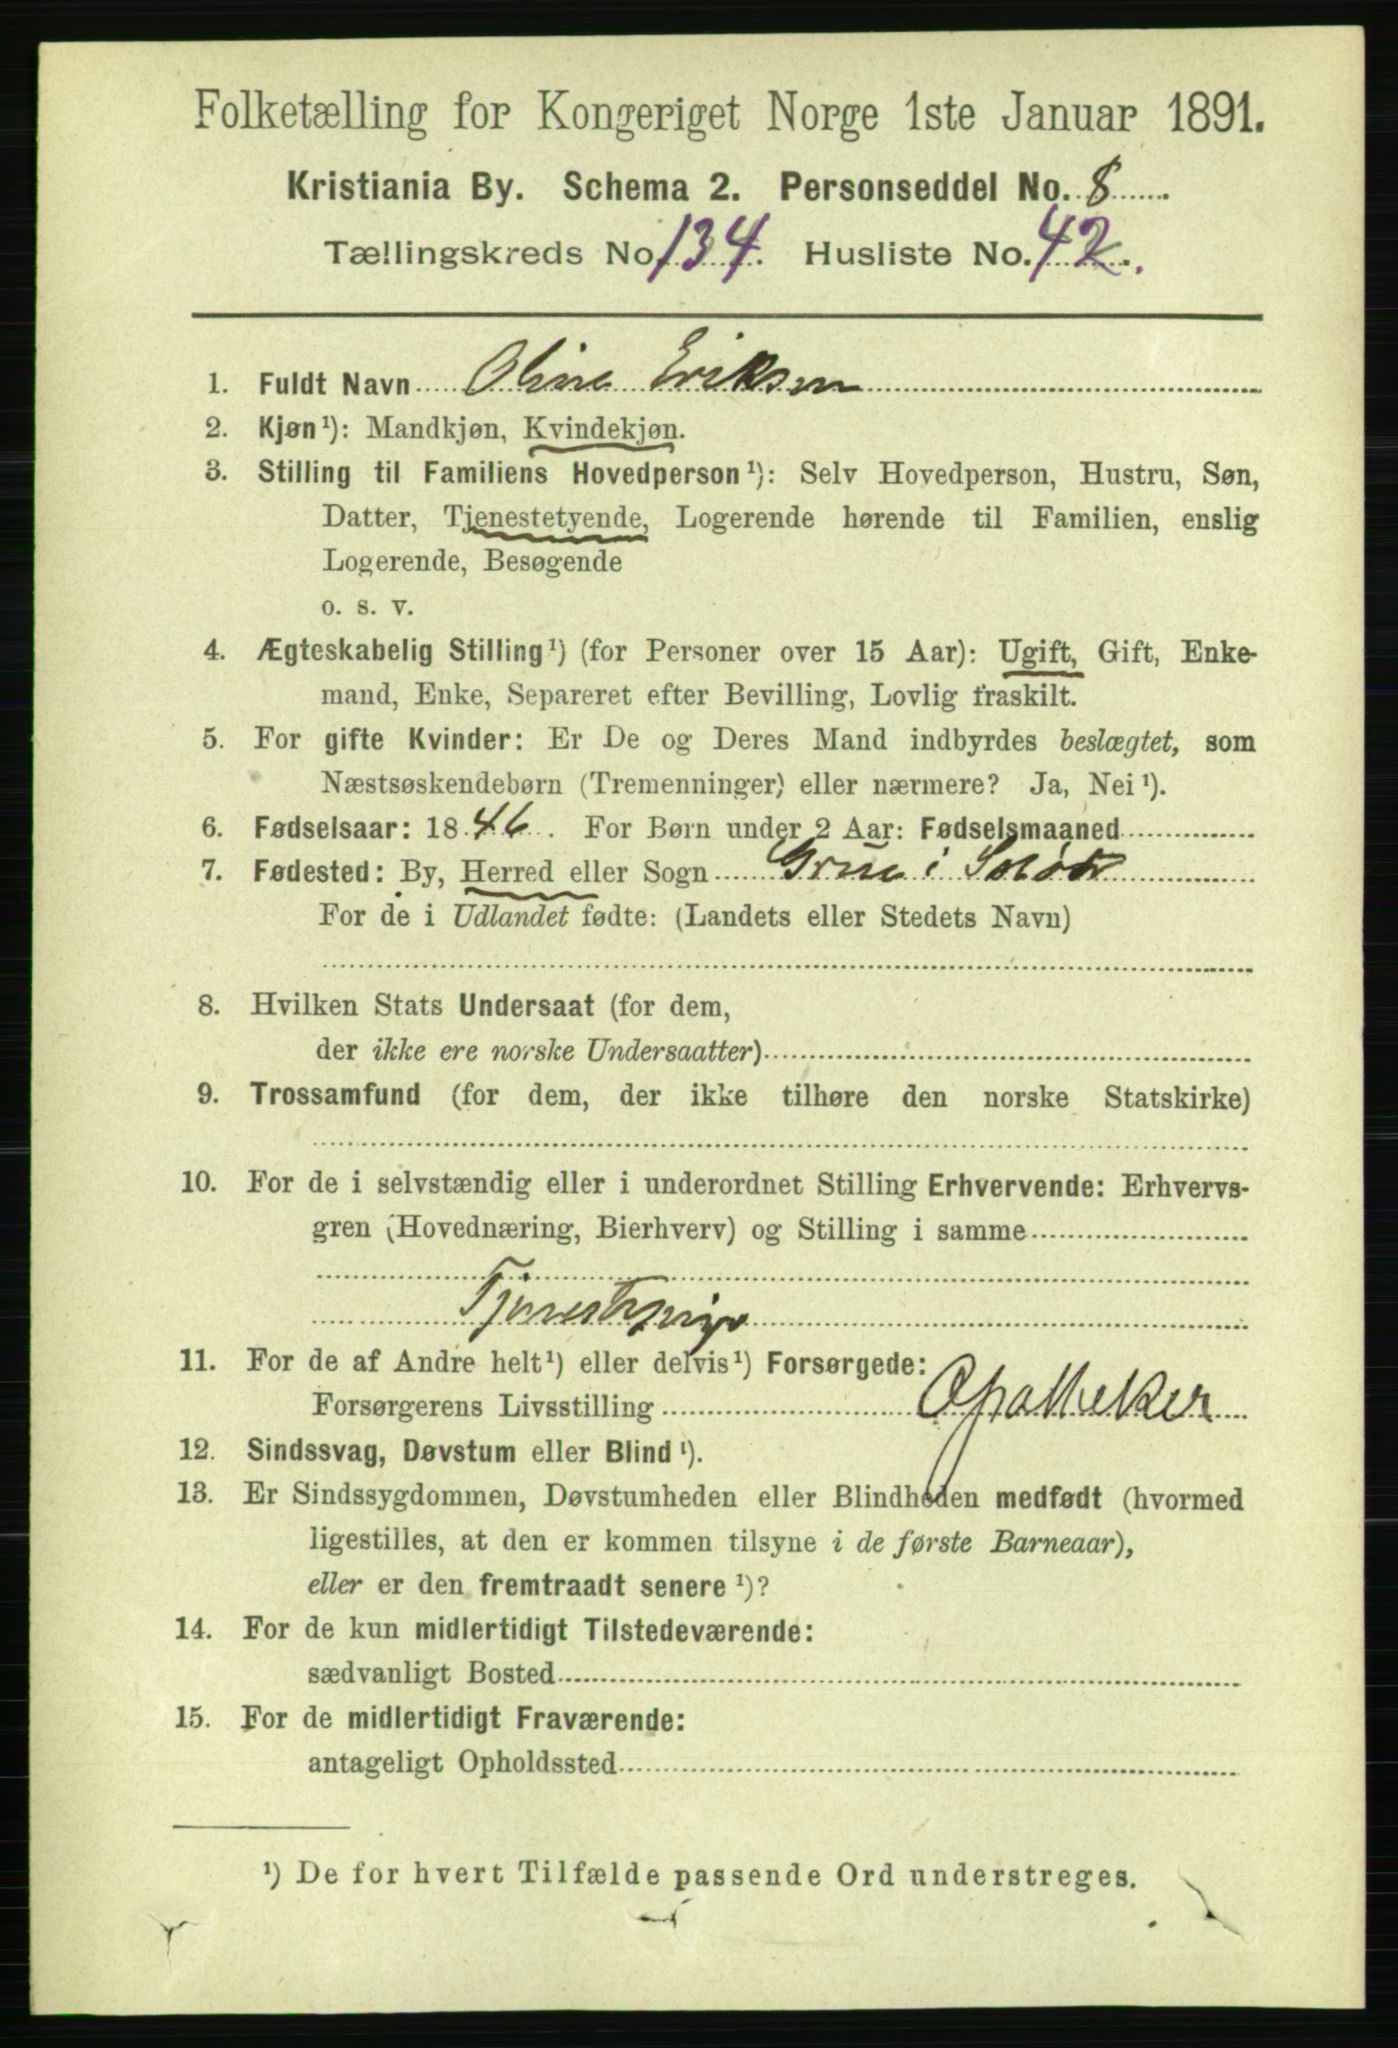 Folketælling for Kongeriget Norge 1ste Januar 1891.
Kristiania By. Schema 2. Personseddel No. 8
Tællingskreds No. 134. Husliste No. 42.
1. Fuldt Navn Oline Eriksen
2. Kjøn¹): Mandkjøn, Kvindekjøn.
3. Stilling til Familiens Hovedperson¹): Selv Hovedperson, Hustru, Søn,
Datter, Tjenestetyende, Logerende hørende til Familien, enslig
Logerende, Besøgende
o. s. v.
4. Ægteskabelig Stilling¹) (for Personer over 15 Aar): Ugift, Gift, Enke-
mand, Enke, Separeret efter Bevilling, Lovlig fraskilt.
5. For gifte Kvinder: Er De og Deres Mand indbyrdes beslægtet, som
Næstsøskendebørn (Tremenninger) eller nærmere? Ja, Nei¹).
6. Fødselsaar: 1846. For Børn under 2 Aar: Fødselsmaaned
7. Fødested: By, Herred eller Sogn Grue i Solør
For de i Udlandet fødte: (Landets eller Stedets Navn)
8. Hvilken Stats Undersaat (for dem,
der ikke ere norske Undersaatter)
9. Trossamfund (for dem, der ikke tilhøre den norske Statskirke)
10. For de i selvstændig eller i underordnet Stilling Erhvervende: Erhvervs-
gren (Hovednæring, Bierhverv) og Stilling i samme
Tjenestepige
11. For de af Andre helt¹) eller delvis¹) Forsørgede:
Forsørgerens Livsstilling Apotheker
12. Sindssvag, Døvstum eller Blind¹).
13. Er Sindssygdommen, Døvstumheden eller Blindheden medfødt (hvormed
ligestilles, at den er kommen tilsyne i de første Barneaar),
eller er den fremtraadt senere¹)?
14. For de kun midlertidigt Tilstedeværende:
sædvanligt Bosted
15. For de midlertidigt Fraværende:
antageligt Opholdssted
¹) De for hvert Tilfælde passende Ord understreges.